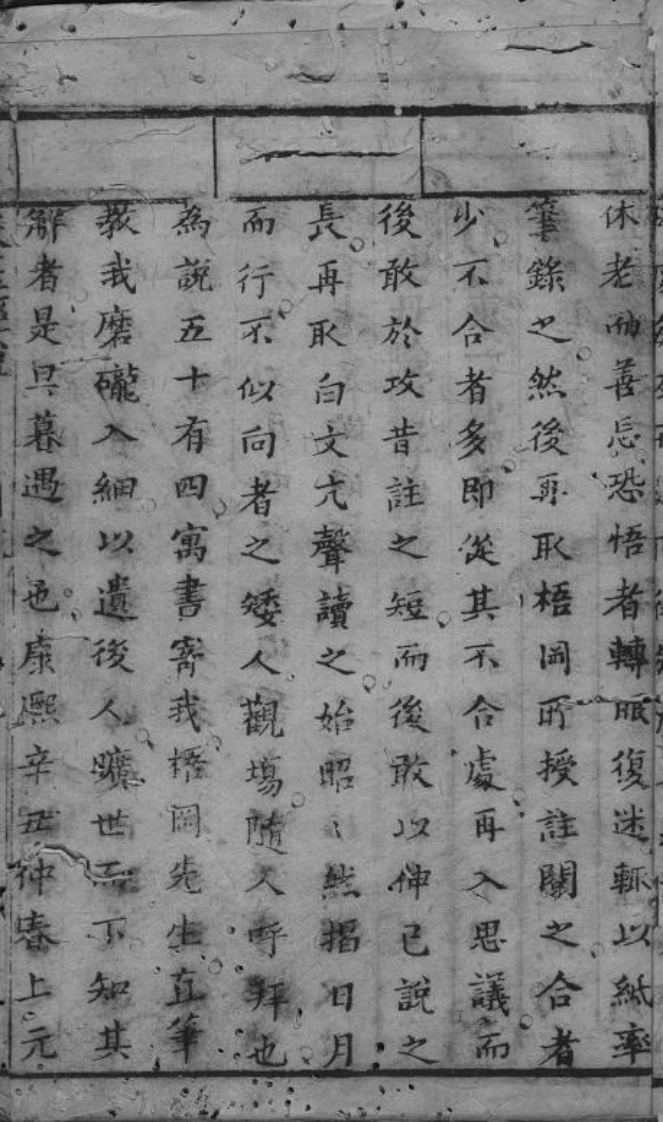 休老而善忘恐悟者轉眼復迷輒以紙率
筆錄之然後再取梧岡所授註闗之合者
少不合者多即從其不合處再入思議而
後敢於攻昔註之短而後敢以伸已說之
長再取白文亢聲讀之始昭〻然揭日月
而行不似向者之矮人觀塲隨人呼拜也
為說五十有四寓書寄我梧岡先生直筆
教我磨礲入細以遺後人曠世而下知其
解者是旦暮遇之也康熙辛丑仲春上元